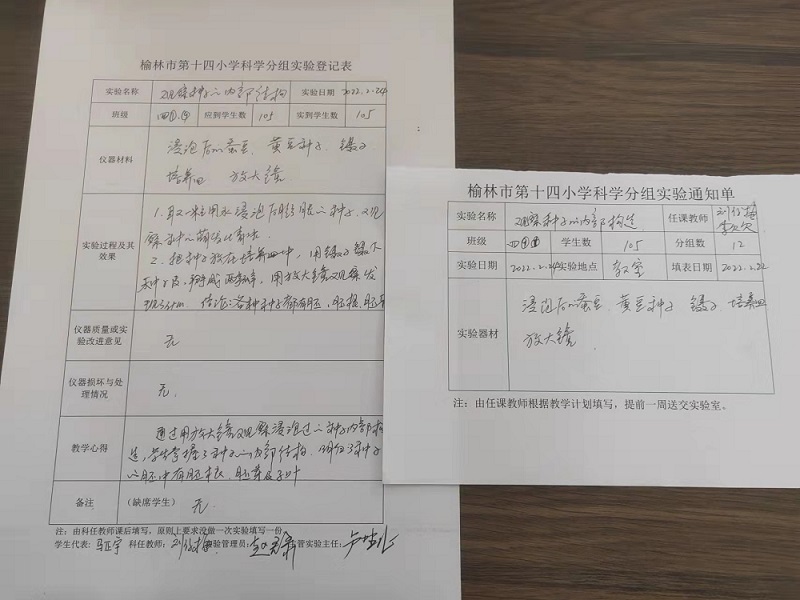 榆林市第十四小学科学分组实验登记表
实验名称 观察种子的内部结构 实验日期 2022.2.24
班级 应到学生数 105 实到学生数 105
仪器材料
浸泡后的蚕豆、黄豆种子、镊子
培养皿 放大镜
实验过程及其
效果
1. 取一粒用水浸泡后的种子,观
2. 把种子放在培养皿中,用镊子
用放大镜观察
结论:各种种子都有胚
仪器质量或实
验改进意见
无
仪器损坏与处
理情况
无.
教学心得
通过用放大镜观察浸泡过的种子内部构
造,学生掌握了种子的内部结构,明白了种子
的胚中有胚根、胚芽及子叶
备注 (缺席学生) 无.
注:由科任教师课后填写,原则上要求没做一次实验填写一份
学生代表: 科任教师: 验管理员: 管实验主任:
榆林市第十四小学科学分组实验通知单
实验名称 观察种子的内部构造 任课教师
班级 学生数 105 分组数 12
实验日期 2022.2.24 实验地点 教室 填表日期 2022.2.22
实验器材
浸泡后的蚕豆、黄豆种子 镊子 培养皿
放大镜
注:由任课教师根据教学计划填写,提前一周送交实验室。